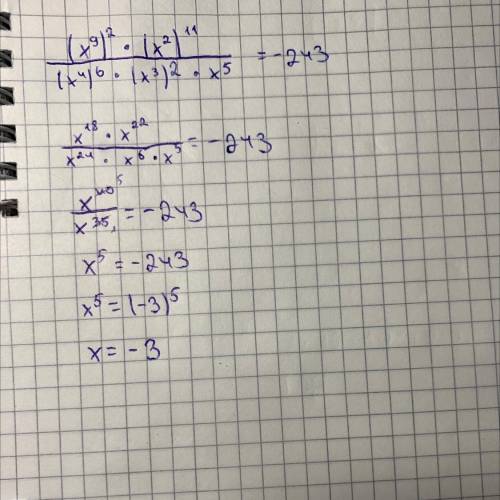 (x⁹)² · (x²)¹¹ / (x⁴)⁶ · (x³)² · x⁵ = -243
x¹⁸ · x²² / x²⁴ · x⁶ · x⁵ = -243
x⁴⁰ ⁵ / x³⁵ ₁ = -243
x⁵ = -243
x⁵ = (-3)⁵
x = -3